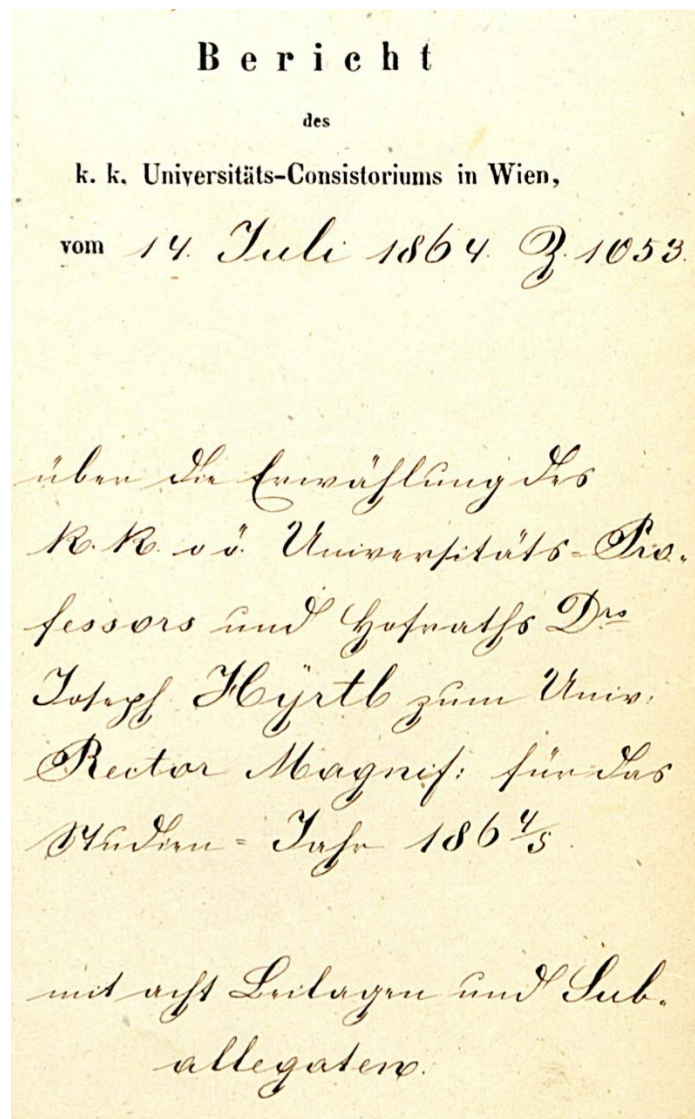 Bericht
des
k. k. Universitäts-Consistoriums in Wien,
vom 14. Juli 1864. Z. 1053.
über die Erwählung des
k. k. o ö. Universitäts-Pro-
fessors und Hofraths Drs
Joseph Hÿrtl zum Univ:
Rector Magnif: für das
Studien-Jahr 1864/5.
mit acht Beilagen und Sub-
allegaten.